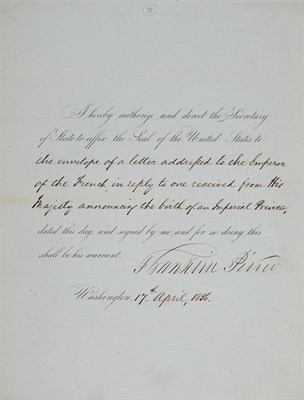 I hereby authorize and direct the Secretary
of State to affix the Seal of the United States to
the envelope of a letter addressed to the Emperor
of the French, in reply to one received from His
Majesty announcing the birth of an Imperial Prince,
dated this day, and signed by me, and for so doing this
shall be his warrant.
Franklin Pierce
Washington, 17th April, 1856.